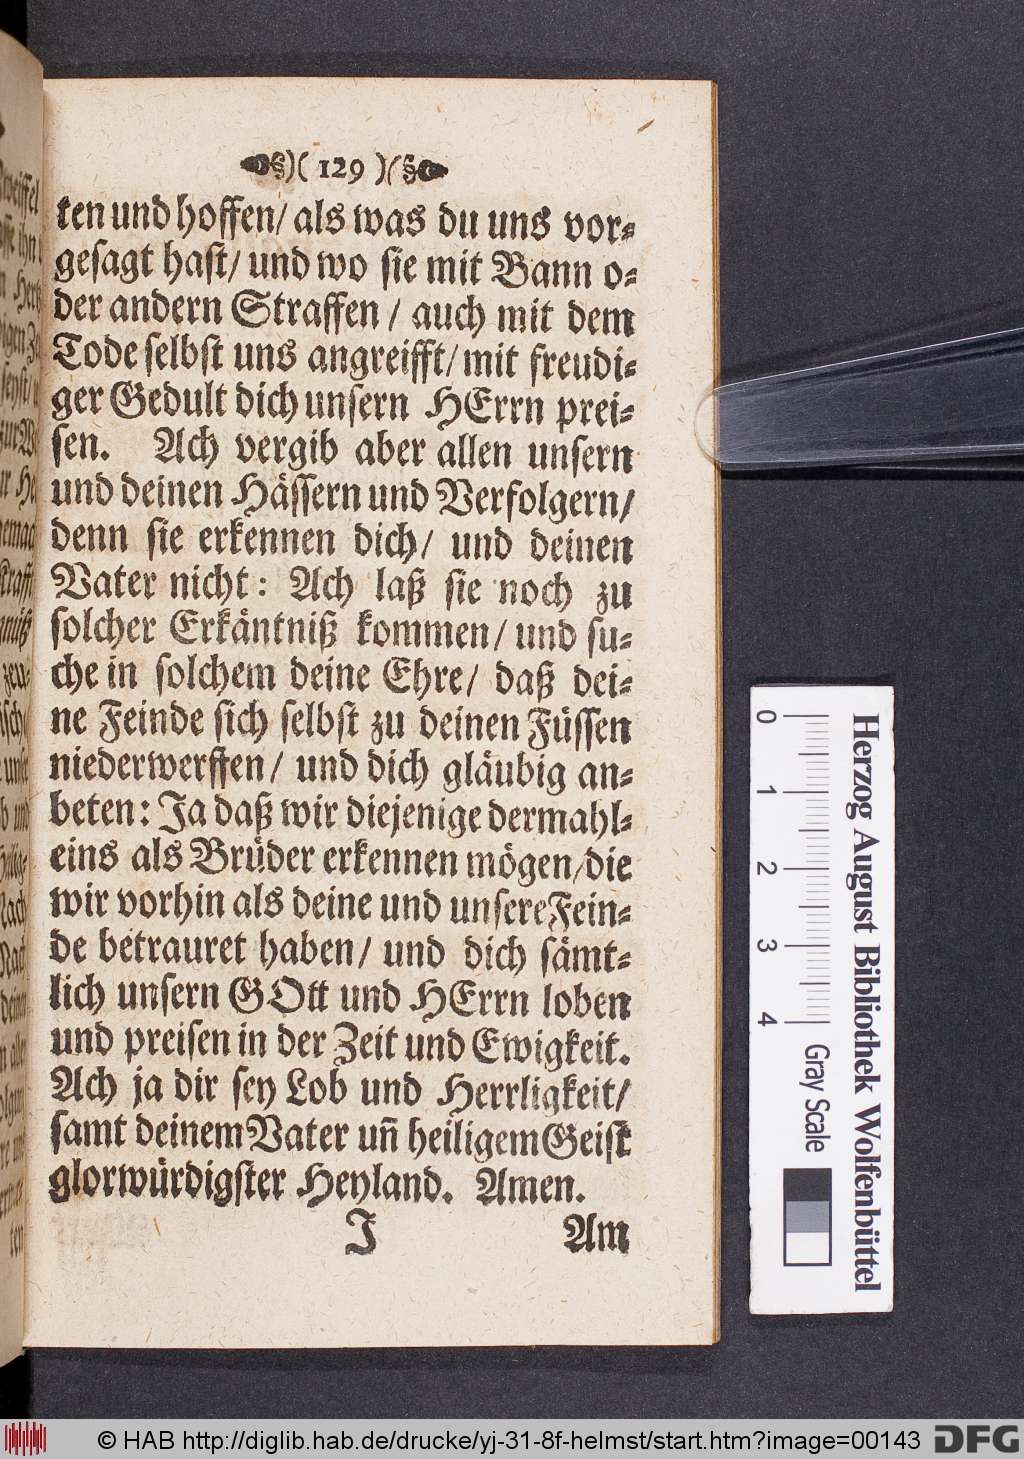 §)( 129 )(§
ten und hoffen/ als was du uns vor-
gesagt hast/ und wo sie mit Bann o-
der andern Straffen / auch mit dem
Tode selbst uns angreifft/ mit freudi-
ger Gedult dich unsern HErrn prei-
sen. Ach vergib aber allen unsern
und deinen Hässern und Verfolgern/
denn sie erkennen dich/ und deinen
Vater nicht: Ach laß sie noch zu
solcher Erkäntniß kommen/ und su-
che in solchem deine Ehre/ daß dei-
ne Feinde sich selbst zu deinen Füssen
niederwerffen/ und dich gläubig an-
beten: Ja daß wir diejenige dermahl-
eins als Brüder erkennen mögen/die
wir vorhin als deine und unsere Fein-
de betrauret haben/ und dich sämt-
lich unsern GOtt und HErrn loben
und preisen in der Zeit und Ewigkeit.
Ach ja dir sey Lob und Herrligkeit/
samt deinem Vater uñ heiligem Geist
glorwürdigster Heyland. Amen.
J Am
Herzog August Bibliothek Wolfenbüttel
0 1 2 3 4 Gray Scale
© HAB http://diglib.hab.de/drucke/yj-31-8f-helmst/start.htm?image=00143
DFG